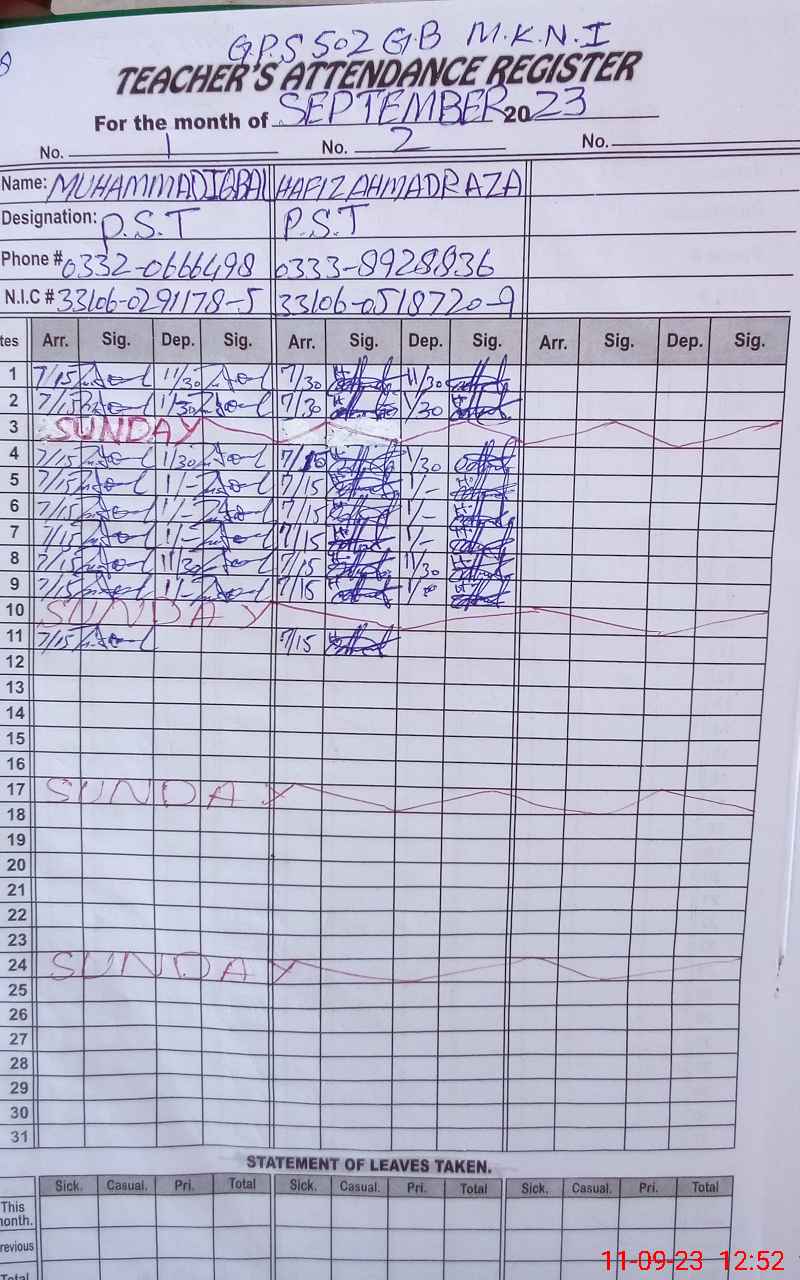 G.P.S 502 GB M.K.N.I
TEACHER'S ATTENDANCE REGISTER
For the month of SEPTEMBER 2023
No. 1 No. 2 No.
Name: MUHAMMAD IQBAL HAFIZ AHMAD RAZA
Designation: P.S.T P.S.T
Phone # 0332-0666498 0333-8928836
N.I.C # 33106-0291178-5 33106-0518720-9
tes Arr. Sig. Dep. Sig. Arr. Sig. Dep. Sig. Arr. Sig. Dep. Sig.
1 7/15 11/30 7/30 11/30
2 7/15 11/30 7/30 1/30
3 SUNDAY
4 7/15 1/30 7/15 1/30
5 7/15 1/- 7/15 1/-
6 7/15 1/- 7/15 1/-
7 7/15 1/- 7/15 1/-
8 7/15 11/30 7/15 11/30
9 7/15 1/- 7/15
10 SUNDAY
11 7/15 7/15
12
13
14
15
16
17 SUNDAY
18
19
20
21
22
23
24 SUNDAY
25
26
27
28
29
30
31
STATEMENT OF LEAVES TAKEN.
Sick. Casual. Pri. Total Sick. Casual. Pri. Total Sick. Casual. Pri. Total
This
onth.
revious
Total
11-09-23 12:52